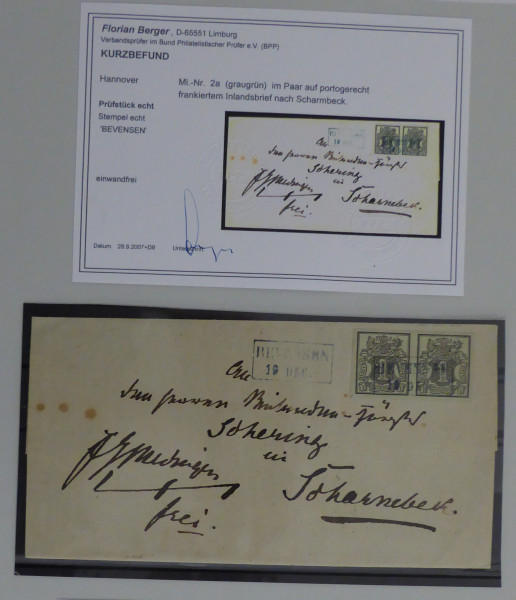 Florian Berger, D-65551 Limburg
Verbandsprüfer im Bund Philatelistischer Prüfer e.V. (BPP)
KURZBEFUND
Hannover
Mi.-Nr. 2a (graugrün) im Paar auf portogerecht
frankiertem Inlandsbrief nach Scharmbeck.
Prüfstück echt
Stempel echt
'BEVENSEN'
einwandfrei
Datum 29.9.2007+DB
An
den Herrn
Söhering
in
Scharnebeck.
frei.
BEVENSEN
19 DEC.
An
den Herrn
Söhering
in
Scharnebeck.
frei.